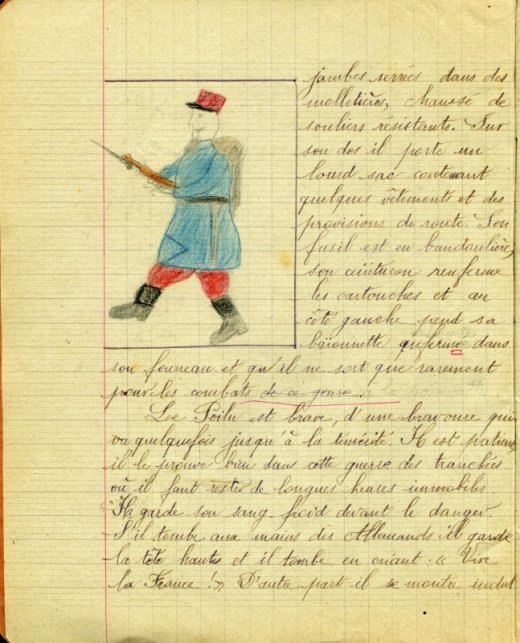 jambes serrées dans des
molletières, chaussé de
souliers résistants. Sur
son dos il porte un
lourd sac contenant
quelques vêtements et des
provisions de route. Son
fusil est en bandoulière,
son ceinturon renferme
les cartouches et au
côté gauche pend sa
baïonnette enfermé dans
son fourneau et qu'il ne sort que rarement
pour les combats de ce genre.
Le Poilu est brave, d'une bravoure qui
va quelquefois jusqu'à la témérité. Il est patient,
il le prouve bien dans cette guerre des tranchées
où il faut rester de longues heures immobiles.
Il garde son sang-froid devant le danger.
S'il tombe aux mains des Allemands il garde
la tête haute et il tombe en criant : « Vive
la France ! » D'autre part il se montre indul